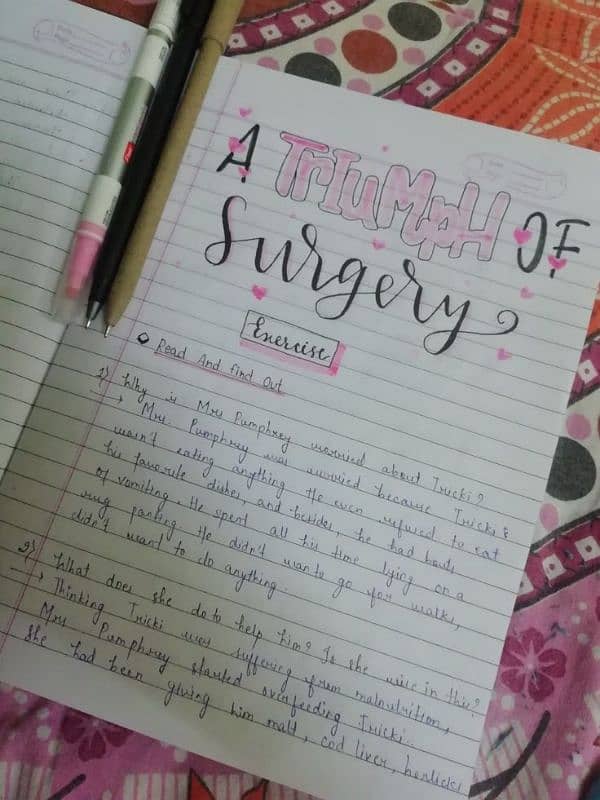 A TRIUMPH OF
Surgery
Exercise
Read And find Out
1) Why is Mrs Pumphrey worried about Tricki?
→ Mrs. Pumphrey was worried because Tricki
wasn't eating anything. He even refused to eat
his favorite dishes, and besides, he had bouts
of vomiting. He spent all his time lying on a
rug panting. He didn't want to go for walks,
didn't want to do anything.
2) What does she do to help him? Is she wise in this?
→ Thinking Tricki was suffering from malnutrition,
Mrs Pumphrey started overfeeding Tricki.
She had been giving him malt, cod liver, horlicks